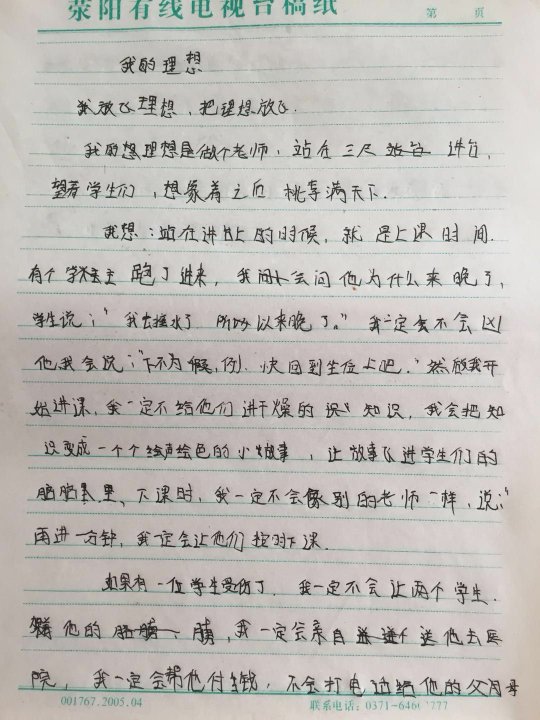 荥阳有线电视台稿纸 第 页
我的理想
我放飞理想，把理想放飞.
我的理想是做个老师，站在三尺讲台，
望着学生们，想象着之后桃李满天下.
我想：站在讲台上的时候，就是上课时间.
有个学生跑了进来，我会问他为什么来晚了，
学生说：“我去接水了 所以来晚了。”我一定不会凶
他，我会说：“下不为例，快回到坐位上吧.”然后我开
始讲课，我一定不给他们讲干燥的知识，我会把知
识变成一个个绘声绘色的小故事，让故事飞进学生们的
脑里、下课时，我一定不会像别的老师一样，说：“
再讲一分钟，我一定会让他们按时下课.
如果有一位学生受伤了.我一定不会让两个学生.
他的，我一定会亲自送他去医
院，我一定会帮他付钱，不会打电话给他的父母
001767.2005.04 联系电话：0371-646 7777